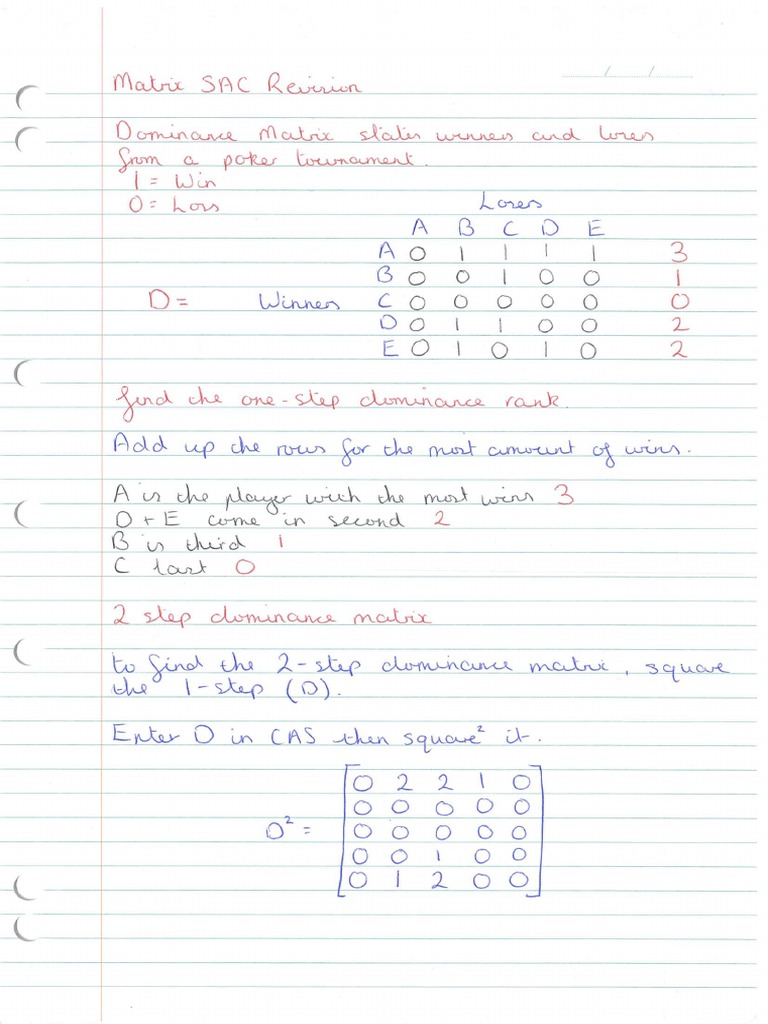 Matrix SAC Revision
/ /
Dominance Matrix states winners and loses
from a poker tournament.
1 = Win
0 = Loss
Losers
A B C D E
A 0 1 1 1 1 3
B 0 0 1 0 0 1
D = Winners C 0 0 0 0 0 0
D 0 1 1 0 0 2
E 0 1 0 1 0 2
find the one-step dominance rank.
Add up the rows for the most amount of wins.
A is the player with the most wins 3
D + E come in second 2
B is third 1
C last 0
2 step dominance matrix
to find the 2-step dominance matrix, square
the 1-step (D).
Enter D in CAS then square² it.
0 2 2 1 0
0 0 0 0 0
D² = 0 0 0 0 0
0 0 1 0 0
0 1 2 0 0